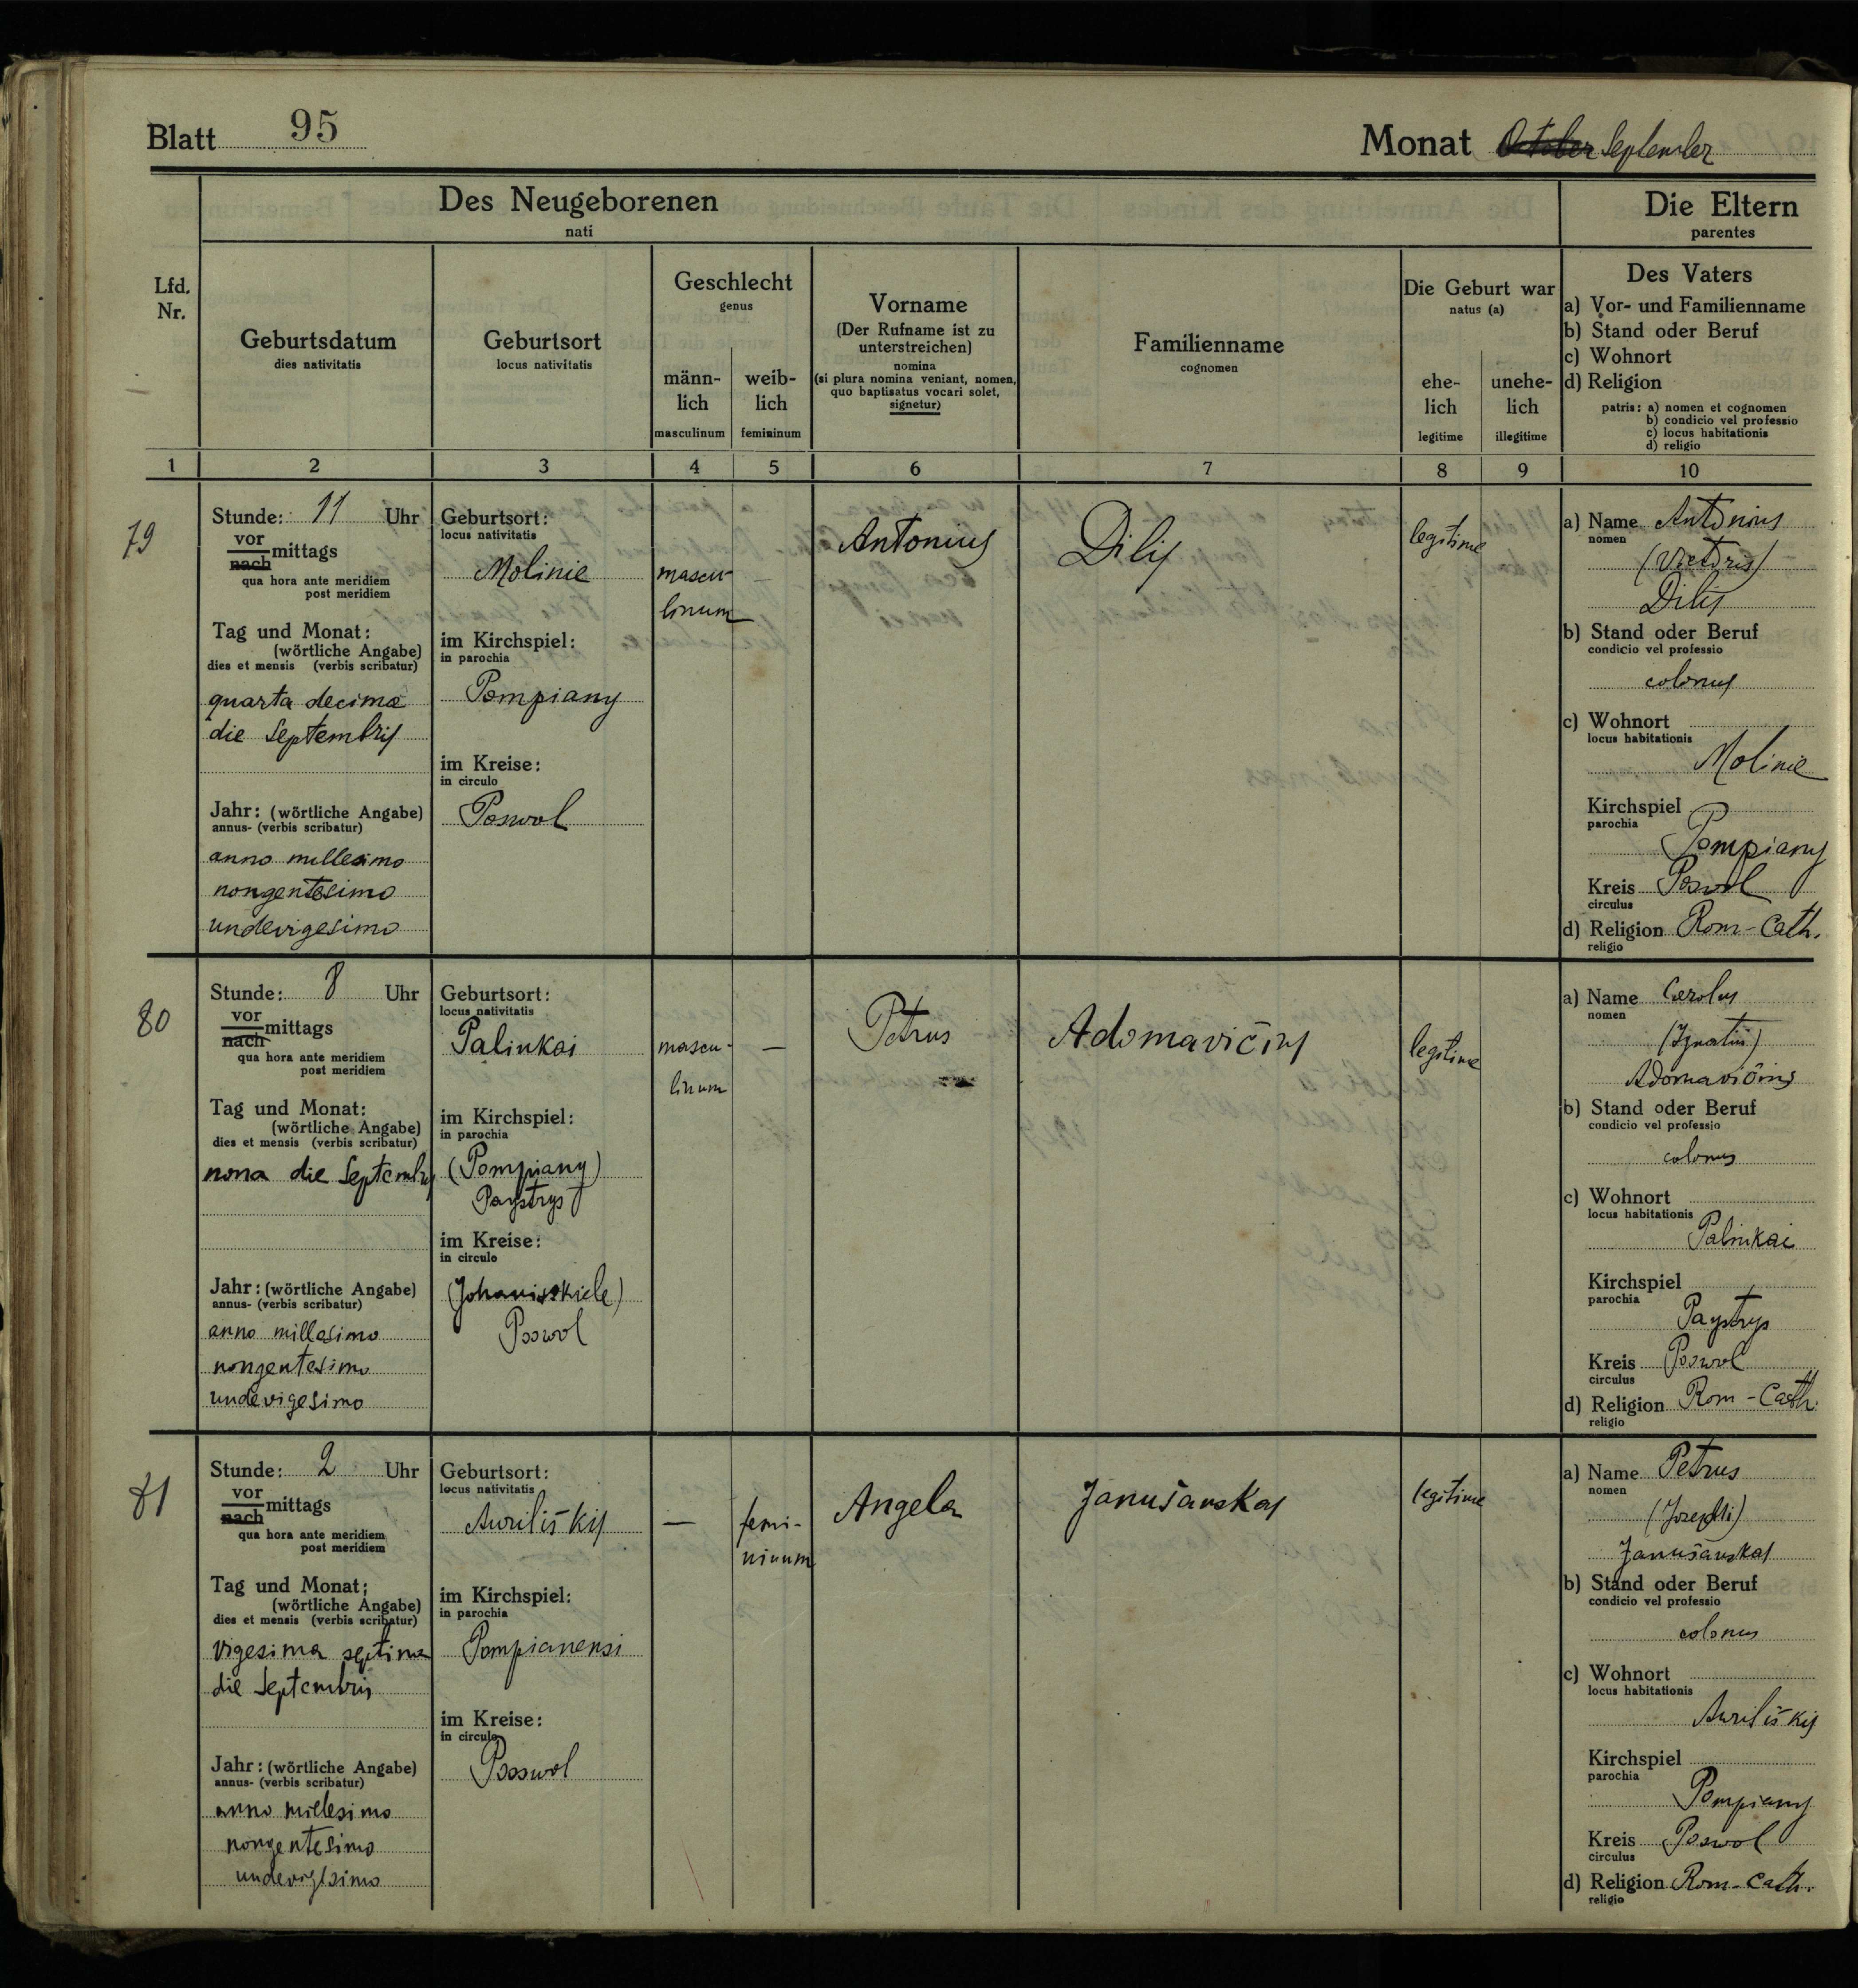 Blatt 95
Monat October September
Des Neugeborenen
nati
Die Eltern
parentes
Lfd.
Nr.
Geburtsdatum
dies nativitatis
Geburtsort
locus nativitatis
Geschlecht
genus
männ-
lich
masculinum
weib-
lich
femininum
Vorname
(Der Rufname ist zu
unterstreichen)
nomina
(si plura nomina veniant, nomen,
quo baptisatus vocari solet,
signetur)
Familienname
cognomen
Die Geburt war
natus (a)
ehe-
lich
legitime
unehe-
lich
illegitime
Des Vaters
a) Vor- und Familienname
b) Stand oder Beruf
c) Wohnort
d) Religion
patris: a) nomen et cognomen
b) condicio vel professio
c) locus habitationis
d) religio
1 2 3 4 5 6 7 8 9 10
79
Stunde: 11 Uhr
vor
nach mittags
qua hora ante meridiem
post meridiem
Tag und Monat:
(wörtliche Angabe)
dies et mensis (verbis scribatur)
quarta decima
die Septembris
Jahr: (wörtliche Angabe)
annus- (verbis scribatur)
anno millesimo
nongentesimo
undevigesimo
Geburtsort:
locus nativitatis
Molinie
im Kirchspiel:
in parochia
Pompiany
im Kreise:
in circulo
Poswol
mascu-
linum
—
Antonius
Dilis
legitime
a) Name Antonius
nomen
(Victoris)
Dilis
b) Stand oder Beruf
condicio vel professio
colonus
c) Wohnort
locus habitationis
Molinie
Kirchspiel
parochia
Pompiany
Kreis Poswol
circulus
d) Religion Rom-Cath.
religio
80
Stunde: 8 Uhr
vor
nach mittags
qua hora ante meridiem
post meridiem
Tag und Monat:
(wörtliche Angabe)
dies et mensis (verbis scribatur)
nona die Septembris
Jahr: (wörtliche Angabe)
annus- (verbis scribatur)
anno millesimo
nongentesimo
undevigesimo
Geburtsort:
locus nativitatis
Palinkai
im Kirchspiel:
in parochia
(Pompiany)
Paystrys
im Kreise:
in circulo
(Johanisskiele)
Poswol
mascu-
linum
—
Petrus
Adomavičius
legitime
a) Name Carolus
nomen
(Ignatii)
Adomavičius
b) Stand oder Beruf
condicio vel professio
colonus
c) Wohnort
locus habitationis
Palinkai
Kirchspiel
parochia
Paystrys
Kreis Poswol
circulus
d) Religion Rom-Cath.
religio
81
Stunde: 2 Uhr
vor
nach mittags
qua hora ante meridiem
post meridiem
Tag und Monat:
(wörtliche Angabe)
dies et mensis (verbis scribatur)
vigesima septima
die Septembris
Jahr: (wörtliche Angabe)
annus- (verbis scribatur)
anno millesimo
nongentesimo
undevigesimo
Geburtsort:
locus nativitatis
Auriliškis
im Kirchspiel:
in parochia
Pompianensi
im Kreise:
in circulo
Poswol
—
femi-
ninum
Angela
Janušauskas
legitime
a) Name Petrus
nomen
(Josephi)
Janušauskas
b) Stand oder Beruf
condicio vel professio
colonus
c) Wohnort
locus habitationis
Auriliškis
Kirchspiel
parochia
Pompiany
Kreis Poswol
circulus
d) Religion Rom-Cath.
religio